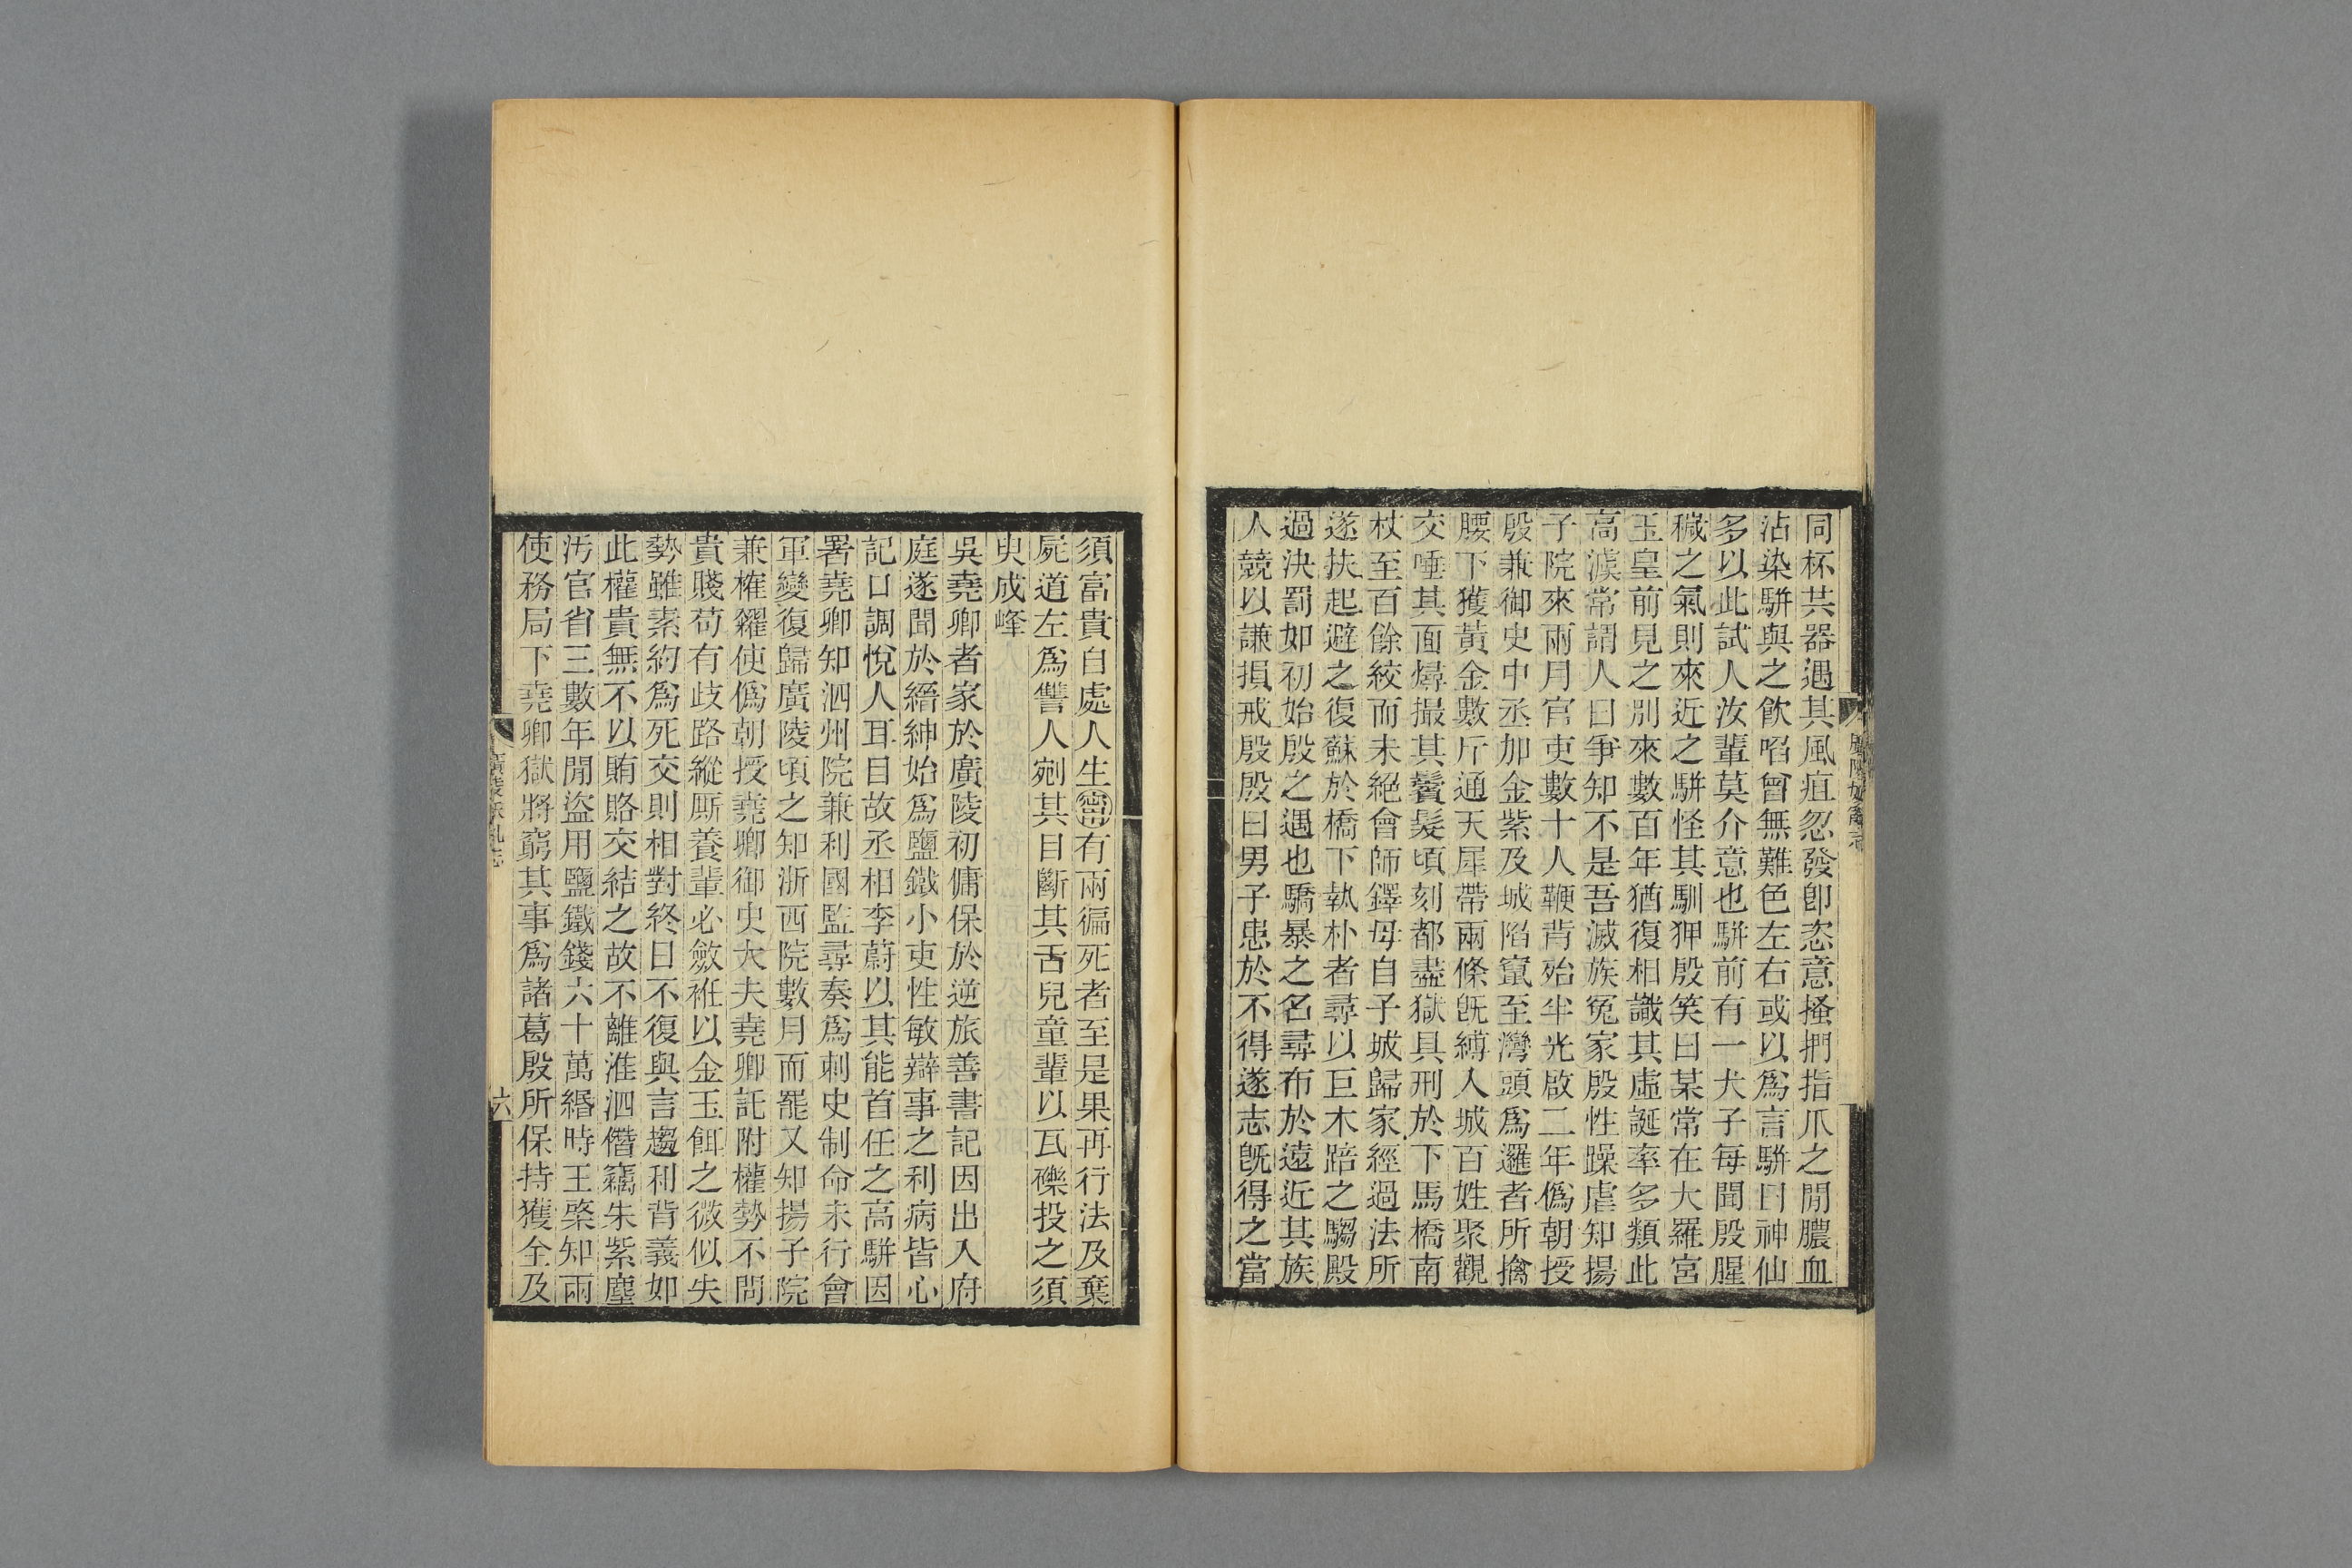 同杯共器遇其風疽忽發卽恣意搔捫指爪之閒膿血
沾染駢與之飲啗曾無難色左右或以爲言駢曰神仙
多以此試人汝輩莫介意也駢前有一犬子每聞殷腥
穢之氣則來近之駢怪其馴狎殷笑曰某常在大羅宮
玉皇前見之別來數百年猶復相識其虛誕率多類此
高澞常謂人曰爭知不是吾滅族冤家殷性躁虐知揚
子院來兩月官吏數十人鞭背殆半光啟二年僞朝授
殷兼御史中丞加金紫及城陷竄至灣頭爲邏者所擒
腰下獲黃金數斤通天犀帶兩條旣縛入城百姓聚觀
交唾其面燖撮其鬢髮頃刻都盡獄具刑於下馬橋南
杖至百餘絞而未絕會師鐸母自子城歸家經過法所
遂扶起避之復蘇於橋下執朴者尋以巨木踣之騶殿
過決罰如初始殷之遇也驕暴之名尋布於遠近其族
人競以謙損戒殷殷曰男子患於不得遂志旣得之當
須富貴自處人生寧有兩徧死者至是果再行法及棄
屍道左爲讐人剜其目斷其舌兒童輩以瓦礫投之須
臾成峰
吳堯卿者家於廣陵初傭保於逆旅善書記因出入府
庭遂聞於縉紳始爲鹽鐵小吏性敏辯事之利病皆心
記口調悅人耳目故丞相李蔚以其能首任之高駢因
署堯卿知泗州院兼利國監尋奏爲刺史制命未行會
軍變復歸廣陵頃之知浙西院數月而罷又知揚子院
兼榷糴使僞朝授堯卿御史大夫堯卿託附權勢不問
貴賤苟有歧路縱厮養輩必斂袵以金玉餌之微似失
勢雖素約爲死交則相對終日不復與言趨利背義如
此權貴無不以賄賂交結之故不離淮泗僭竊朱紫塵
汚官省三數年閒盜用鹽鐵錢六十萬緡時王棨知兩
使務局下堯卿獄將窮其事爲諸葛殷所保持獲全及
廣陵妖亂志
六